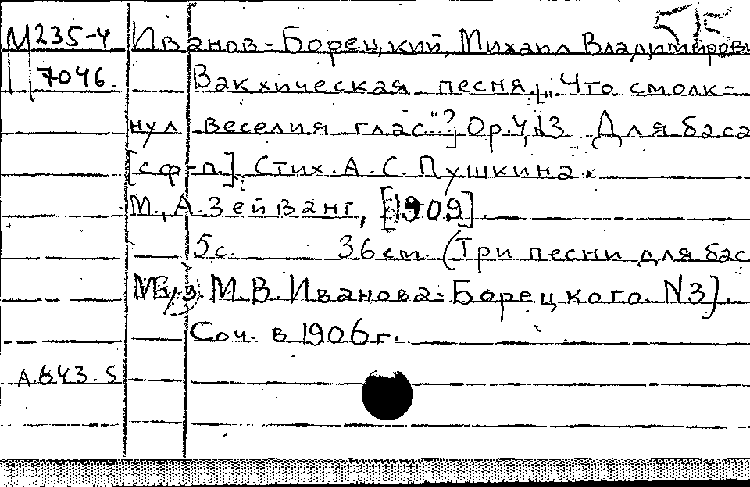 М235-4 Иванов-Борецкий, Михаил Владимиров
7046. Вакхическая песня. „Что смолк-
нул веселия глас"? Ор.4,№3 Для баса
[с ф-п.]. Стих. А.С. Пушкина.
М., А. Зейванг, [1909].
5с. 36см. (Три песни для бас
Муз. М.В. Иванова-Борецкого. N3).
Соч. в 1906г.
А.843.5